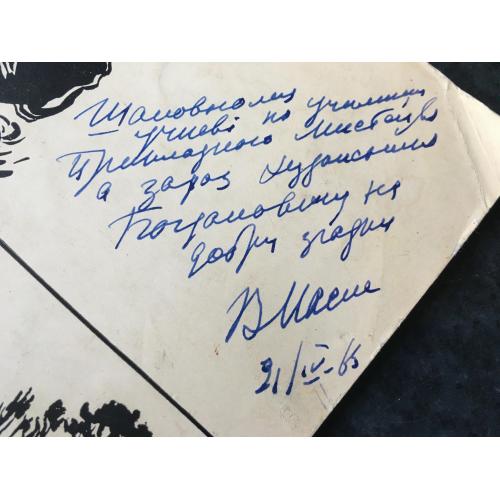 Шановному училищу
учневі по училищу
Прикладного мистецтва
а зараз художнику
Богдановичу на
добру згадку
В Масик
21/IV-65